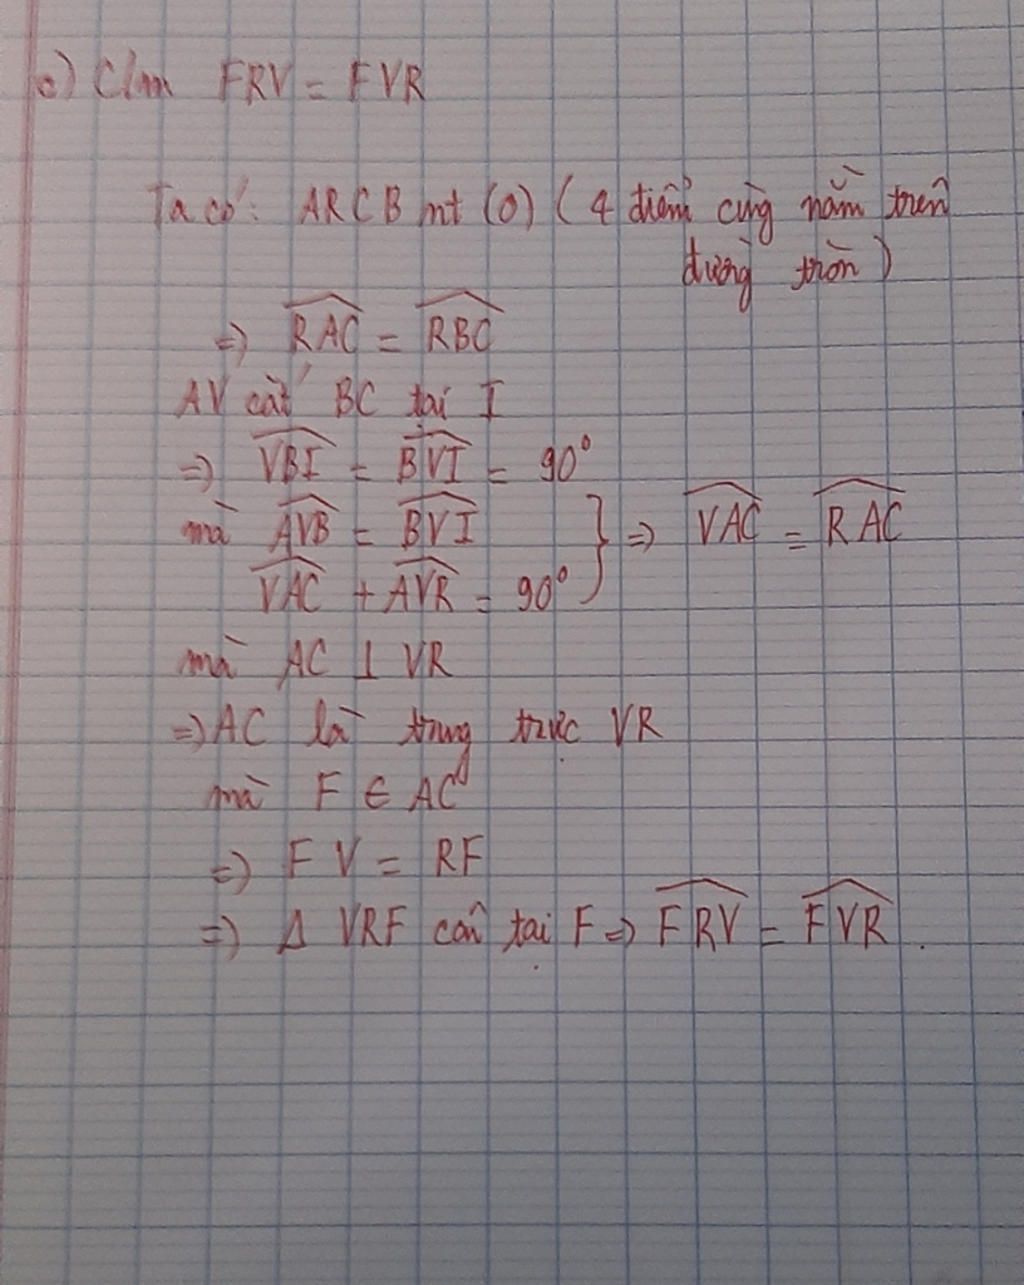 c) C/m FRV = FVR
Ta có: ARCB nt (O) (4 điểm cùng nằm trên
đường tròn)
=> \widehat{RAC} = \widehat{RBC}
AV cắt BC tại I
=> \widehat{VBI} = \widehat{BVI} = 90°
mà \widehat{AVB} = \widehat{BVI}
\widehat{VAC} + \widehat{AVR} = 90° } => \widehat{VAC} = \widehat{RAC}
mà AC ⊥ VR
=> AC là trung trực VR
mà F ∈ AC
=> FV = RF
=> Δ VRF cân tại F => \widehat{FRV} = \widehat{FVR}.